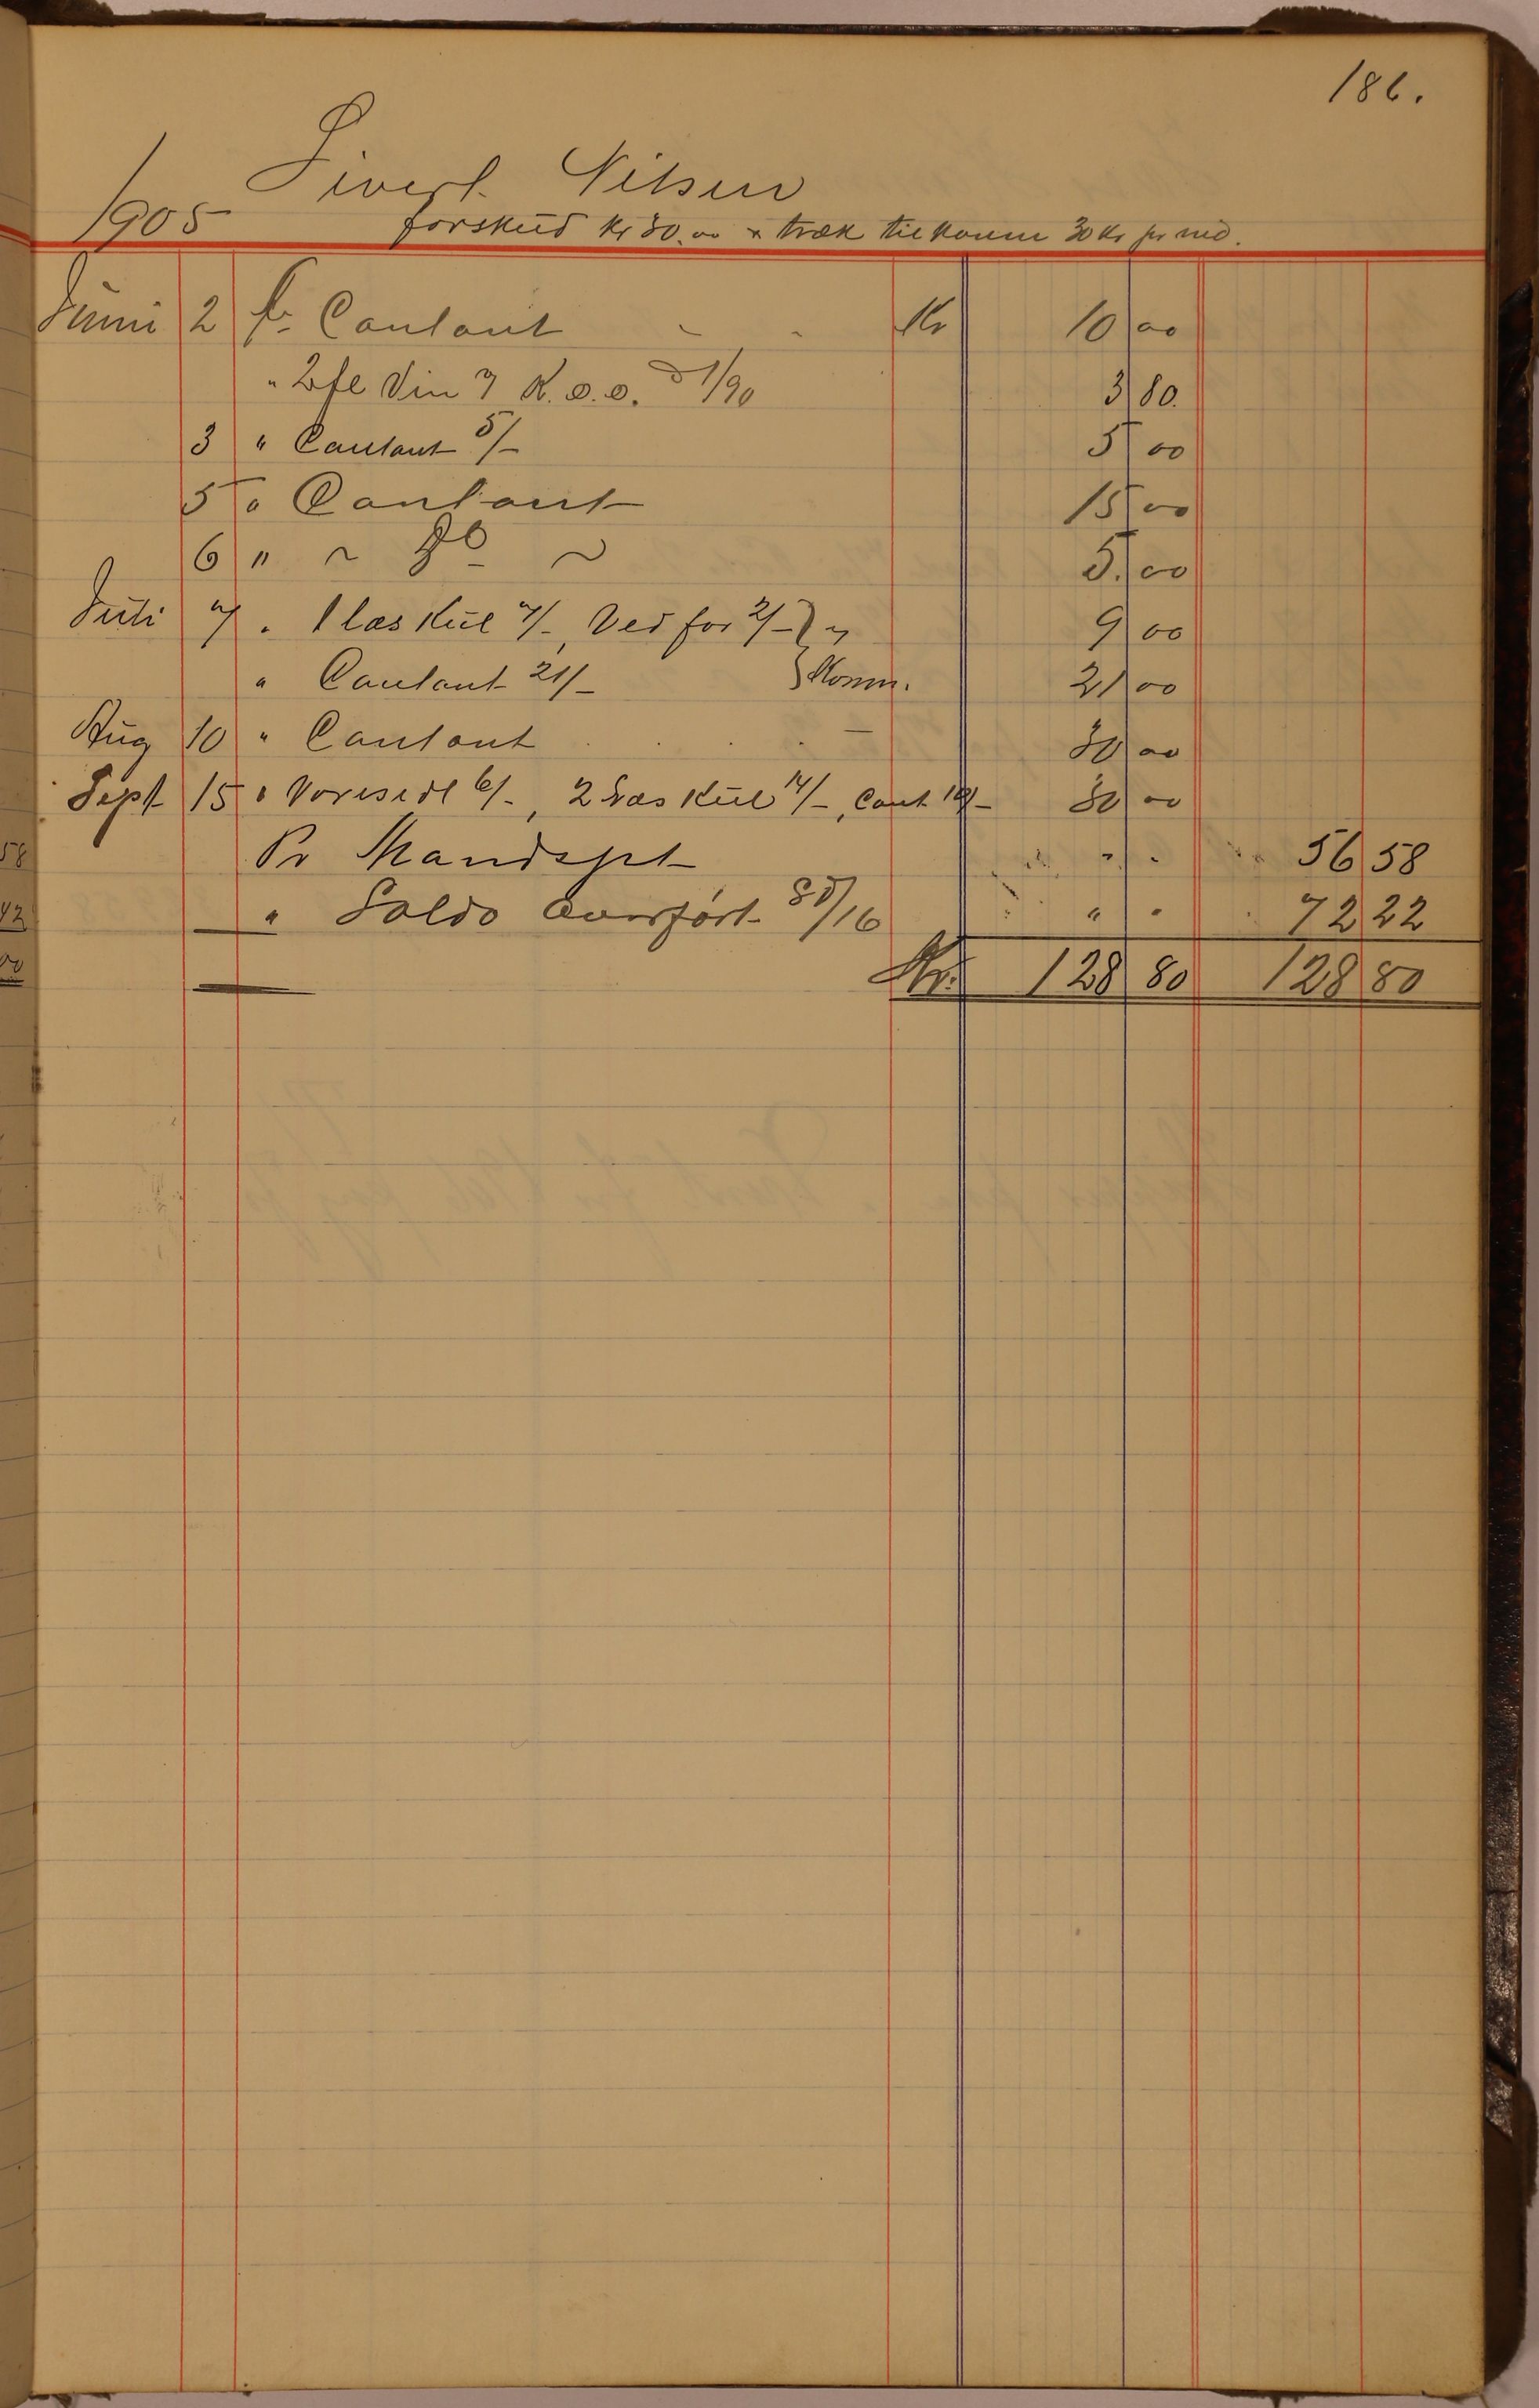 186.
Sivert Nilsen
1905 forskud Kr 30.00 træk tilkomm 30 Kr pr md.
Juni 2 fr Contant - - Kr 10 00
" 2 fl Vin K.o.o. 1/90 3 80.
3 " Contant 5/- 5 00
5 " Contant 15 00
6 " ~ Do ~ 5.00
Juli 7 " 1 læs Kul 7/-, Ved for 2/- } 9 00
" Contant 21/- } Komm. 21 00
Aug 10 " Contant . . . . - 30 00
Sept 15 " 6/-, 2 Læs Kul 14/-, Cont 10/- 30 00
Pr Mandspt " " 56 58
" Saldo Overført 85/16 " " 72 22
Kr: 128 80 128 80
58
42
00